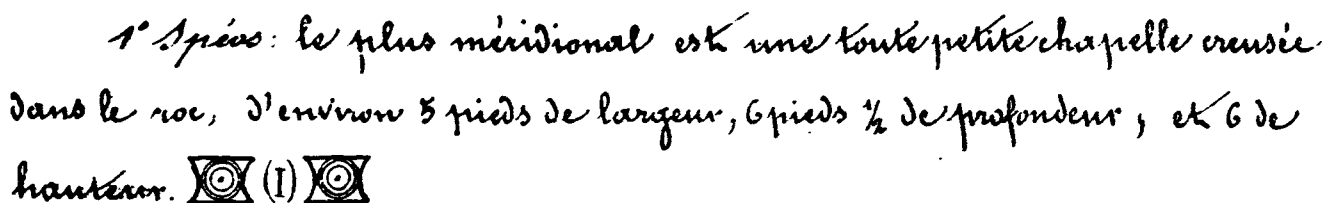 1° Spéos: le plus méridional est une toute petite chapelle creusée
dans le roc, d'environ 5 pieds de largeur, 6 pieds ½ de profondeur, et 6 de
hauteur. (I)